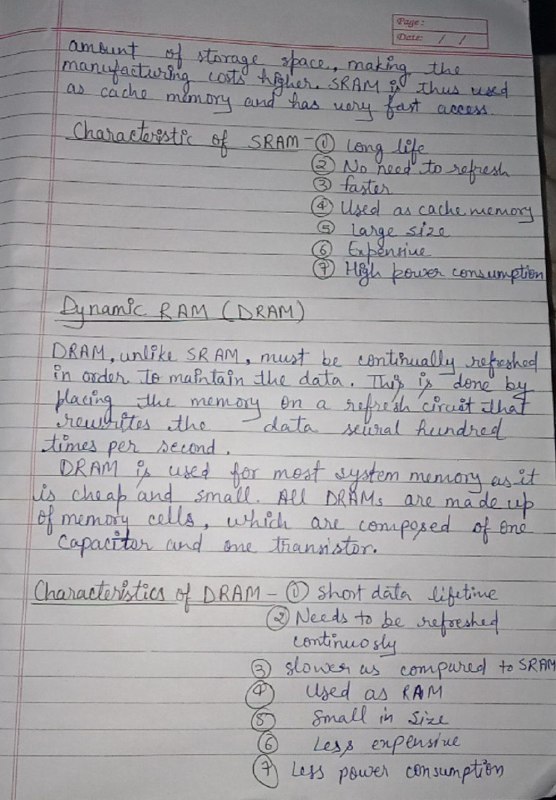 Page:
Date: / /
amount of storage space, making the
manufacturing costs higher. SRAM is thus used
as cache memory and has very fast access.
Characteristic of SRAM - ① Long life
② No need to refresh
③ faster
④ Used as cache memory
⑤ Large size
⑥ Expensive
⑦ High power consumption
Dynamic RAM (DRAM)
DRAM, unlike SRAM, must be continually refreshed
in order to maintain the data. This is done by
placing the memory on a refresh circuit that
rewrites the data seural hundred
times per second.
DRAM is used for most system memory as it
is cheap and small. All DRAMs are made up
of memory cells, which are composed of one
capacitor and one transistor.
Characteristics of DRAM - ① short data lifetime
② Needs to be refreshed
continuosly
③ slower as compared to SRAM
④ Used as RAM
⑤ Small in size
⑥ Less expensive
⑦ Less power consumption